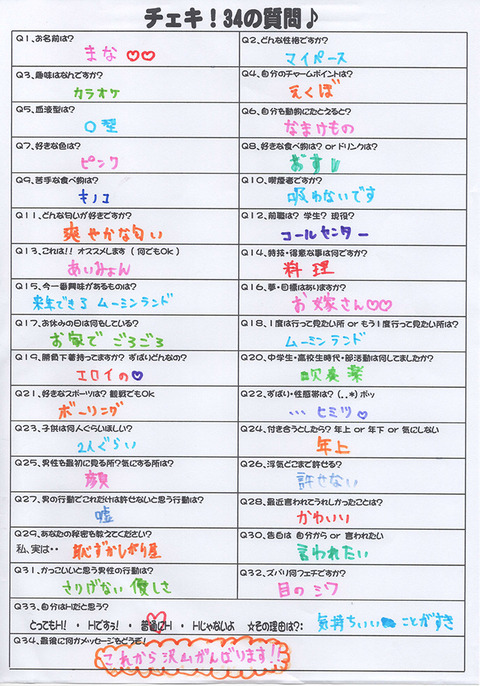 チェキ！34の質問♪
Q1、お名前は？ Q2、どんな性格ですか？
まな♡♡ マイペース
Q3、趣味はなんですか？ Q4、自分のチャームポイントは？
カラオケ えくぼ
Q5、血液型は？ Q6、自分を動物にたとえると？
O型 なまけもの
Q7、好きな色は？ Q8、好きな食べ物は？ or ドリンクは？
ピンク おすし
Q9、苦手な食べ物は？ Q10、喫煙者ですか？
キノコ 吸わないです
Q11、どんな匂いが好きですか？ Q12、前職は？ 学生？ 現役？
爽やかな匂い コールセンター
Q13、これは！！ オススメします（何でもOk） Q14、特技・得意な事は何ですか？
あいみょん 料理
Q15、今一番興味があるものは？ Q16、夢・目標はありますか？
来年できる ムーミンランド お嫁さん♡♡
Q17、お休みの日は何をしている？ Q18、1度は行って見たい所 or もう1度行って見たい所は？
お家で ごろごろ ムーミンランド
Q19、勝負下着持ってますか？ ずばりどんなの？ Q20、中学生・高校生時代・部活動は何してましたか？
エロイの♡ 吹奏楽
Q21、好きなスポーツは？ 観戦でもOk Q22、ずばり・性感帯は？（．．*）ポッ
ボーリング …ヒミツ♡
Q23、子供は何人ぐらいほしい？ Q24、付き合うとしたら？ 年上 or 年下 or 気にしない
2人ぐらい 年上
Q25、男性を最初に見る所？気にする所は？ Q26、浮気どこまで許せる？
顔 許せない
Q27、男の行動でこれだけは許せないと思う行動は？ Q28、最近言われてうれしかったことは？
嘘 かわいい
Q29、あなたの秘密を教えてください？ Q30、告白は 自分から or 言われたい
私、実は・・ 恥ずかしがり屋 言われたい
Q31、かっこいいと思う男性の行動は？ Q32、ズバリ何フェチですか？
さりげない優しさ 目のシワ
Q33、自分はHだと思う？
とってもH！ ・ Hですぅ！ ・ 普通にH ・ Hじゃないよ ☆その理由は？: 気持ちいい ことがすき
Q34、最後に何かメッセージをどうぞ！
これから沢山がんばります！！